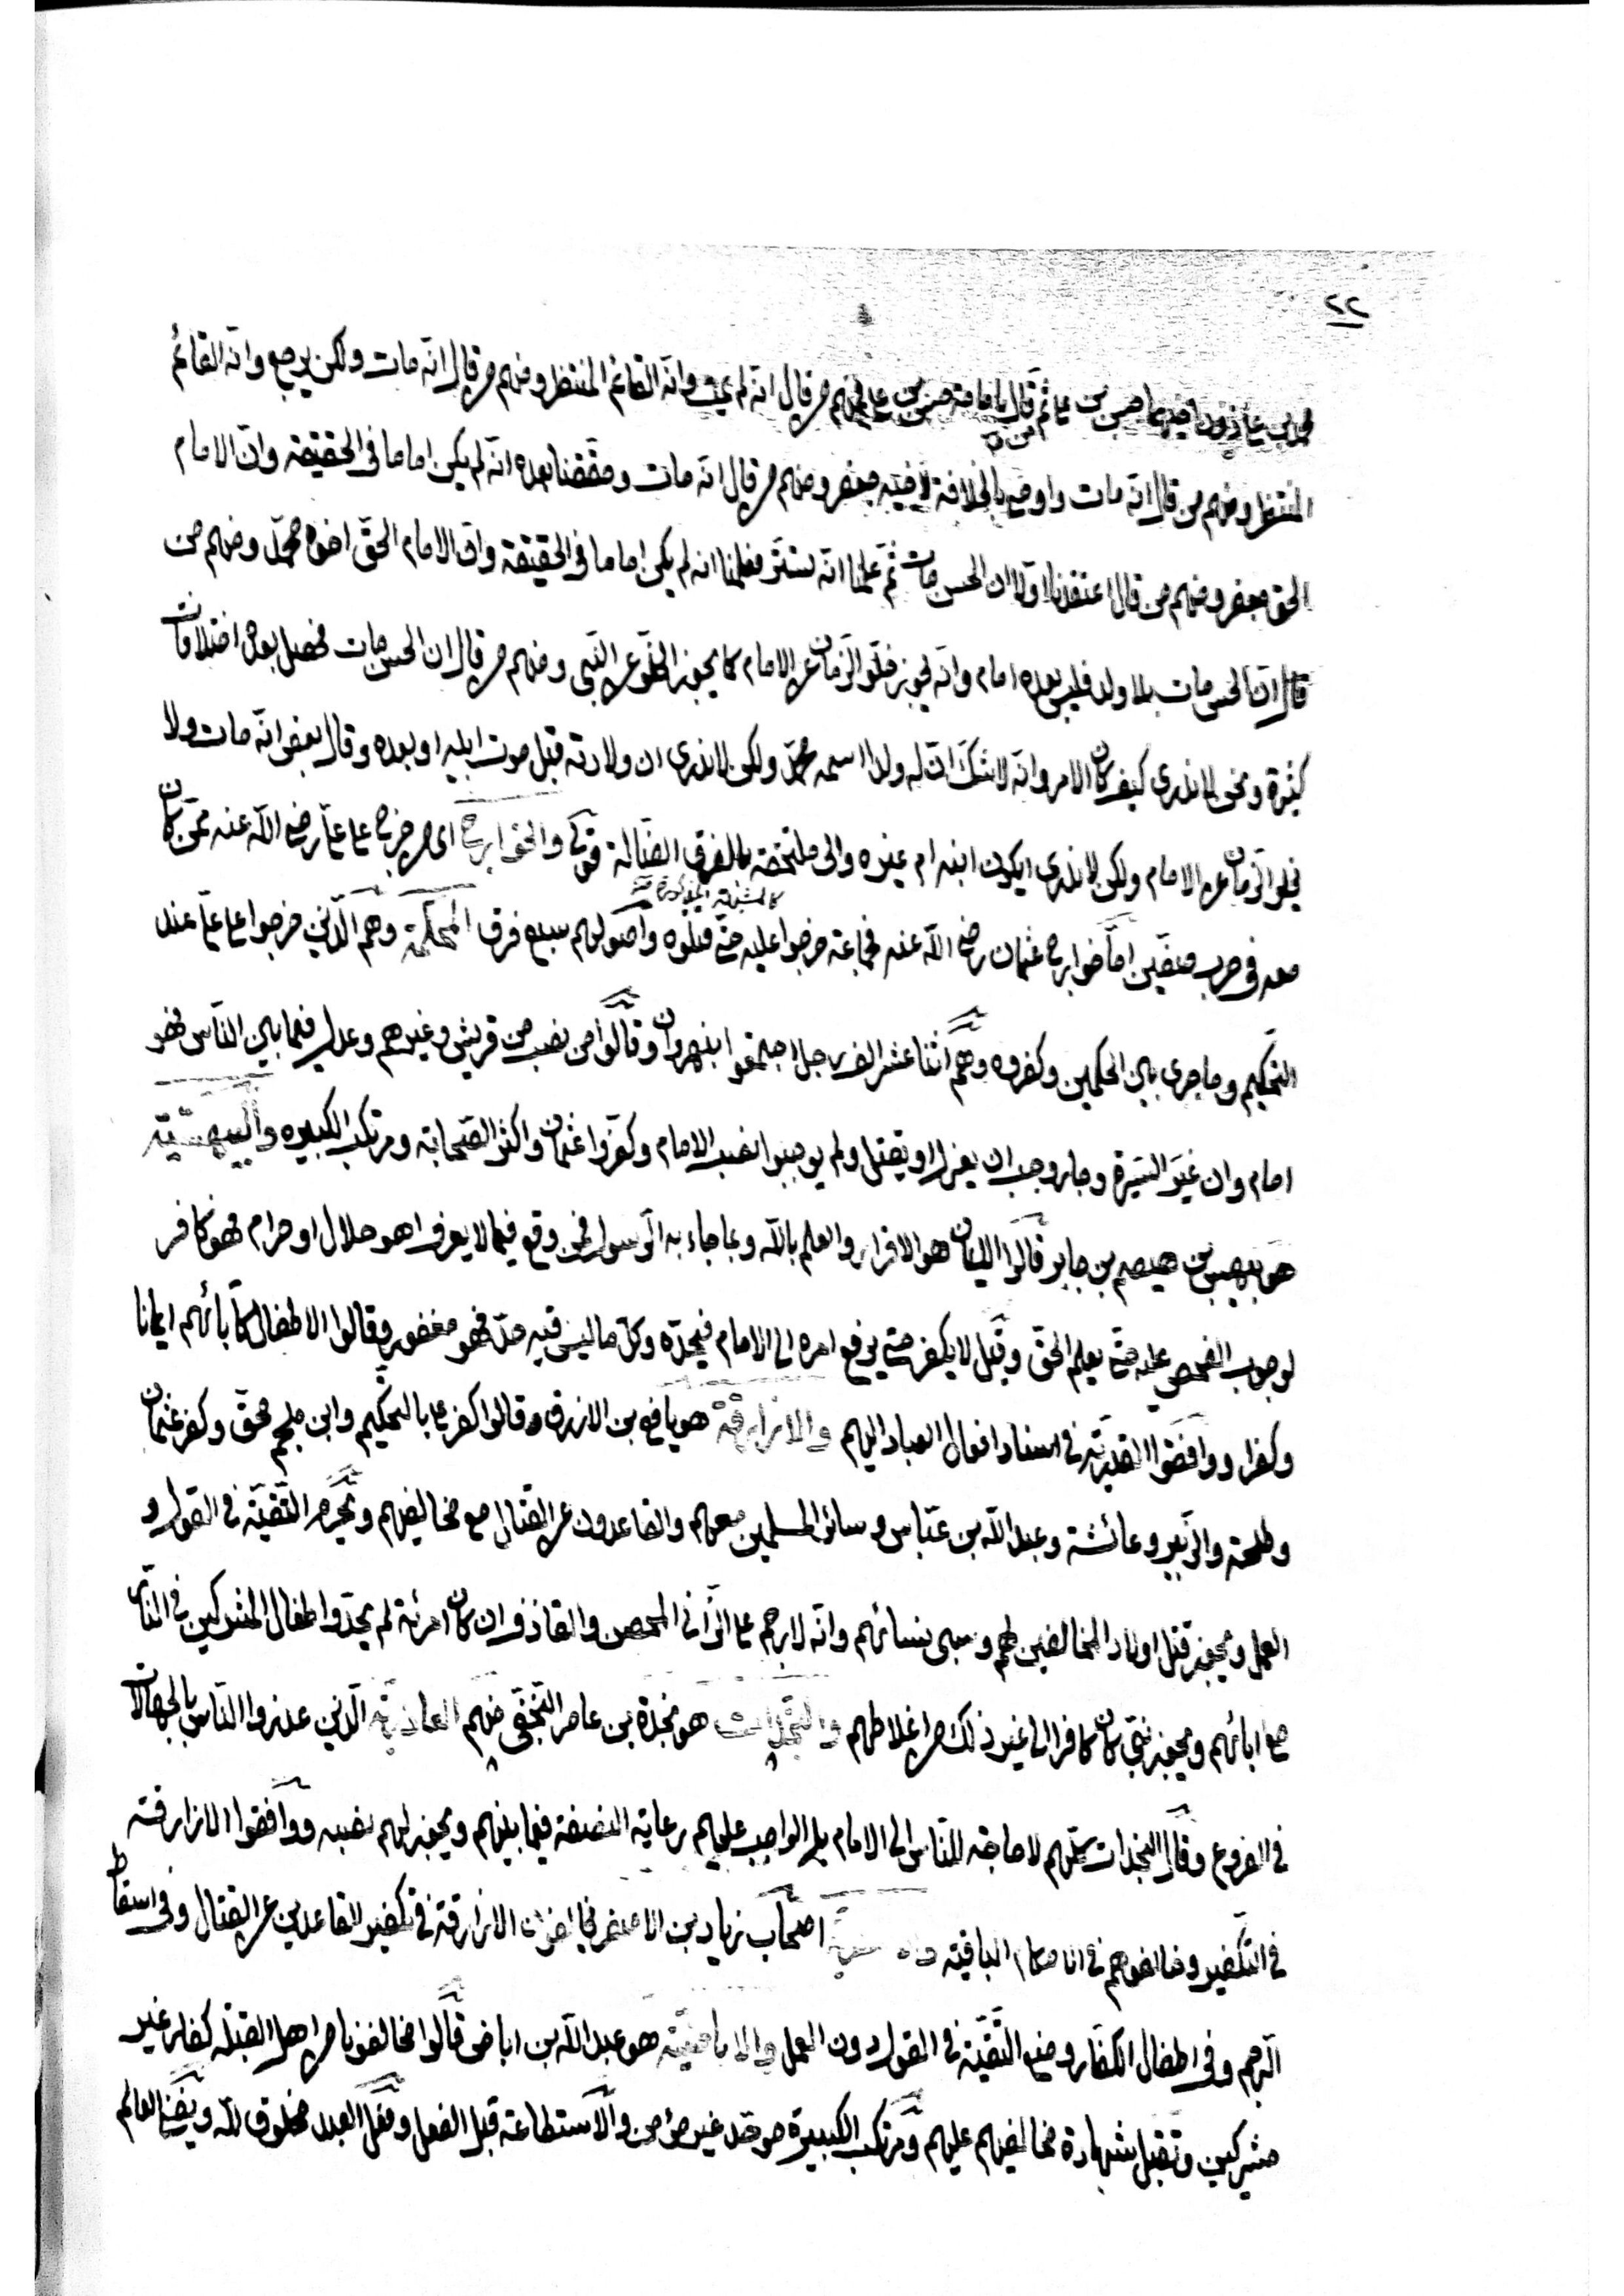 ٢٢
ثم قال بامامة حسن بن علي فمنهم من قال انه لم يمت وانه القائم المنتظر ومنهم من قال انه مات ولكن يرجع وانه القائم
المنتظر ومنهم من قال انه مات واوصى بالخلافة لاخيه جعفر ومنهم من قال انه مات وحققنا بعده انه لم يكن اماما في الحقيقة وان الامام
الحق جعفر ومنهم من قال اعتقدنا اولا ان الحسن مات ثم علمنا انه تستر فعلمنا انه لم يكن اماما في الحقيقة وان الامام الحق اخوه محمد ومنهم من
قال ان الحسن مات بلا ولد فليس بعده امام وانه يجوز خلو الزمان عن الامام كما يجوز الخلو عن النبي ومنهم من قال ان الحسن مات فحصل بعده اختلافات
كثيرة ونحن لا ندري كيف كان الامر وانه لا شك ان له ولدا اسمه محمد ولكن لا ندري ان ولادته قبل موت ابيه او بعده وقال بعض انه مات ولا
يخلو الزمان عن الامام ولكن لا ندري ايكون ابنه ام غيره والى ملتحقة بالفرق الضالة قوله والخوارج اى من خرج على علي رضي الله عنه ممن كان
معه في حرب صفين اما خوارج عثمان رضي الله عنه فجماعة خرجوا عليه حتى قتلوه واصولهم سبع فرق المحكمة وهم الذين خرجوا على علي عند
التحكيم وما جرى بين الحكمين وكفروه وهم اثنا عشر الف رجل اجتمعوا بنهروان وقالوا من نصب من قريش وغيرهم وعدل فيما بين الناس فهو
امام وان غير السيرة وجار وجب ان يعزل او يقتل ولم يوجبوا نصب الامام وكفروا عثمان واكثر الصحابة ومرتكب الكبيره والبيهسية
هو بيهس بن هيصم بن جابر قالوا الايمان هو الاقرار والعلم بالله وبما جاء به الرسول فمن وقع فيما لا يعرف اهو حلال او حرام فهو كافر
لوجوب الفحص عليه حتى يعلم الحق وقيل لا يكفر حتى يرفع امره الى الامام فيحده وكل ما ليس فيه حد فهو مغفور وقالوا الاطفال كآبائهم ايمانا
وكفرا ووافقوا القدرية في اسناد افعال العباد اليهم والازارقة هو نافع بن الازرق وقالوا كفر علي بالتحكيم وابن ملجم محق وكفر عثمان
وطلحة والزبير وعائشة وعبد الله بن عباس وسائر المسلمين معهم والقاعدون عن القتال مع مخالفيهم وتحرم التقية في القول و
العمل ويجوز قتل اولاد المخالفين لهم وسبى نسائهم وانه لا رجم على الزانى المحصن والقاذف ان كان امرئة لم يحد واطفال المشركين في النار
مع ابائهم ويجوز نبي كان كافرا الى غير ذلك من اغلاطهم والنجدات هو نجدة بن عامر النخعي منهم العاذرية الذين عذروا الناس بالجهالات
في الفروع وقال النجدات كلهم لا حاجة للناس الى الامام بل الواجب عليهم رعاية النصفة فيما بينهم ويجوز لهم نصبه ووافقوا الازارقة
في التكفير وخالفوهم في الاحكام الباقية اصحاب زياد بن الاصفر فخالفوا الازارقة في تكفير القاعدين عن القتال وفي اسقاط
الرجم وفى اطفال الكفار ومنع التقية في القول دون العمل والاباضية هو عبد الله بن اباض قالوا مخالفونا من اهل القبلة كفار غير
مشركين وتقبل شهادة مخالفيهم عليهم ومرتكب الكبيرة موحد غير مؤمن والاستطاعة قبل الفعل وفعل العبد مخلوق لله ويفنى العالم